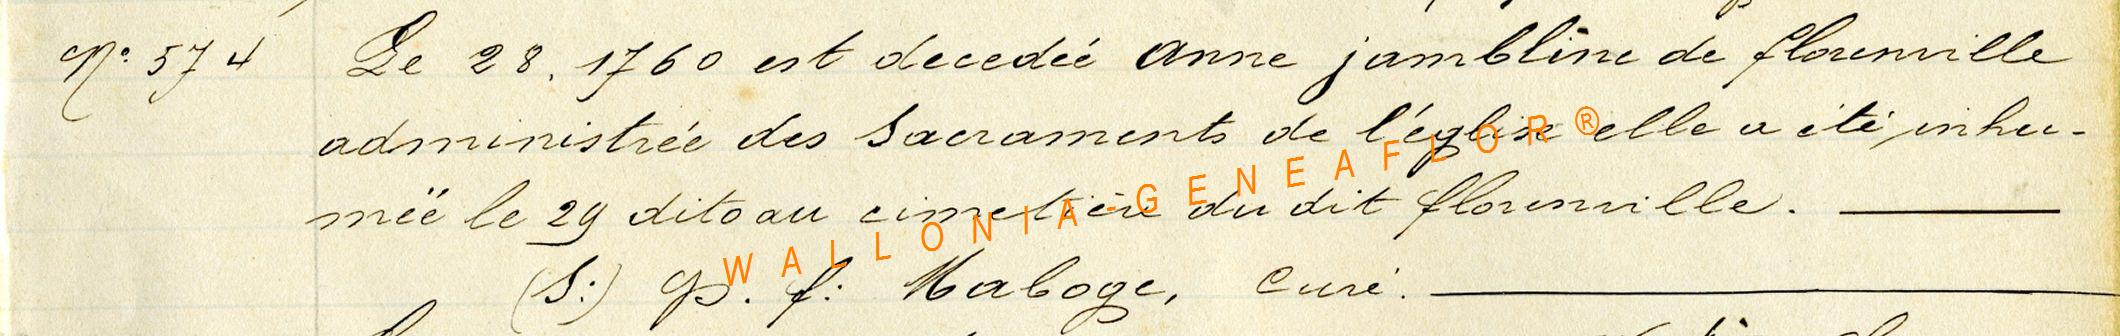 N° 574 Le 28. 1760 est decedéé Anne jambline de florenville
administrée des Sacraments de l'église elle a été inhu-
méë le 29 dito au cimetière du dit florenville.
(S:) p. f: Maboge, Curé.
WALLONIA-GENEAFLOR®